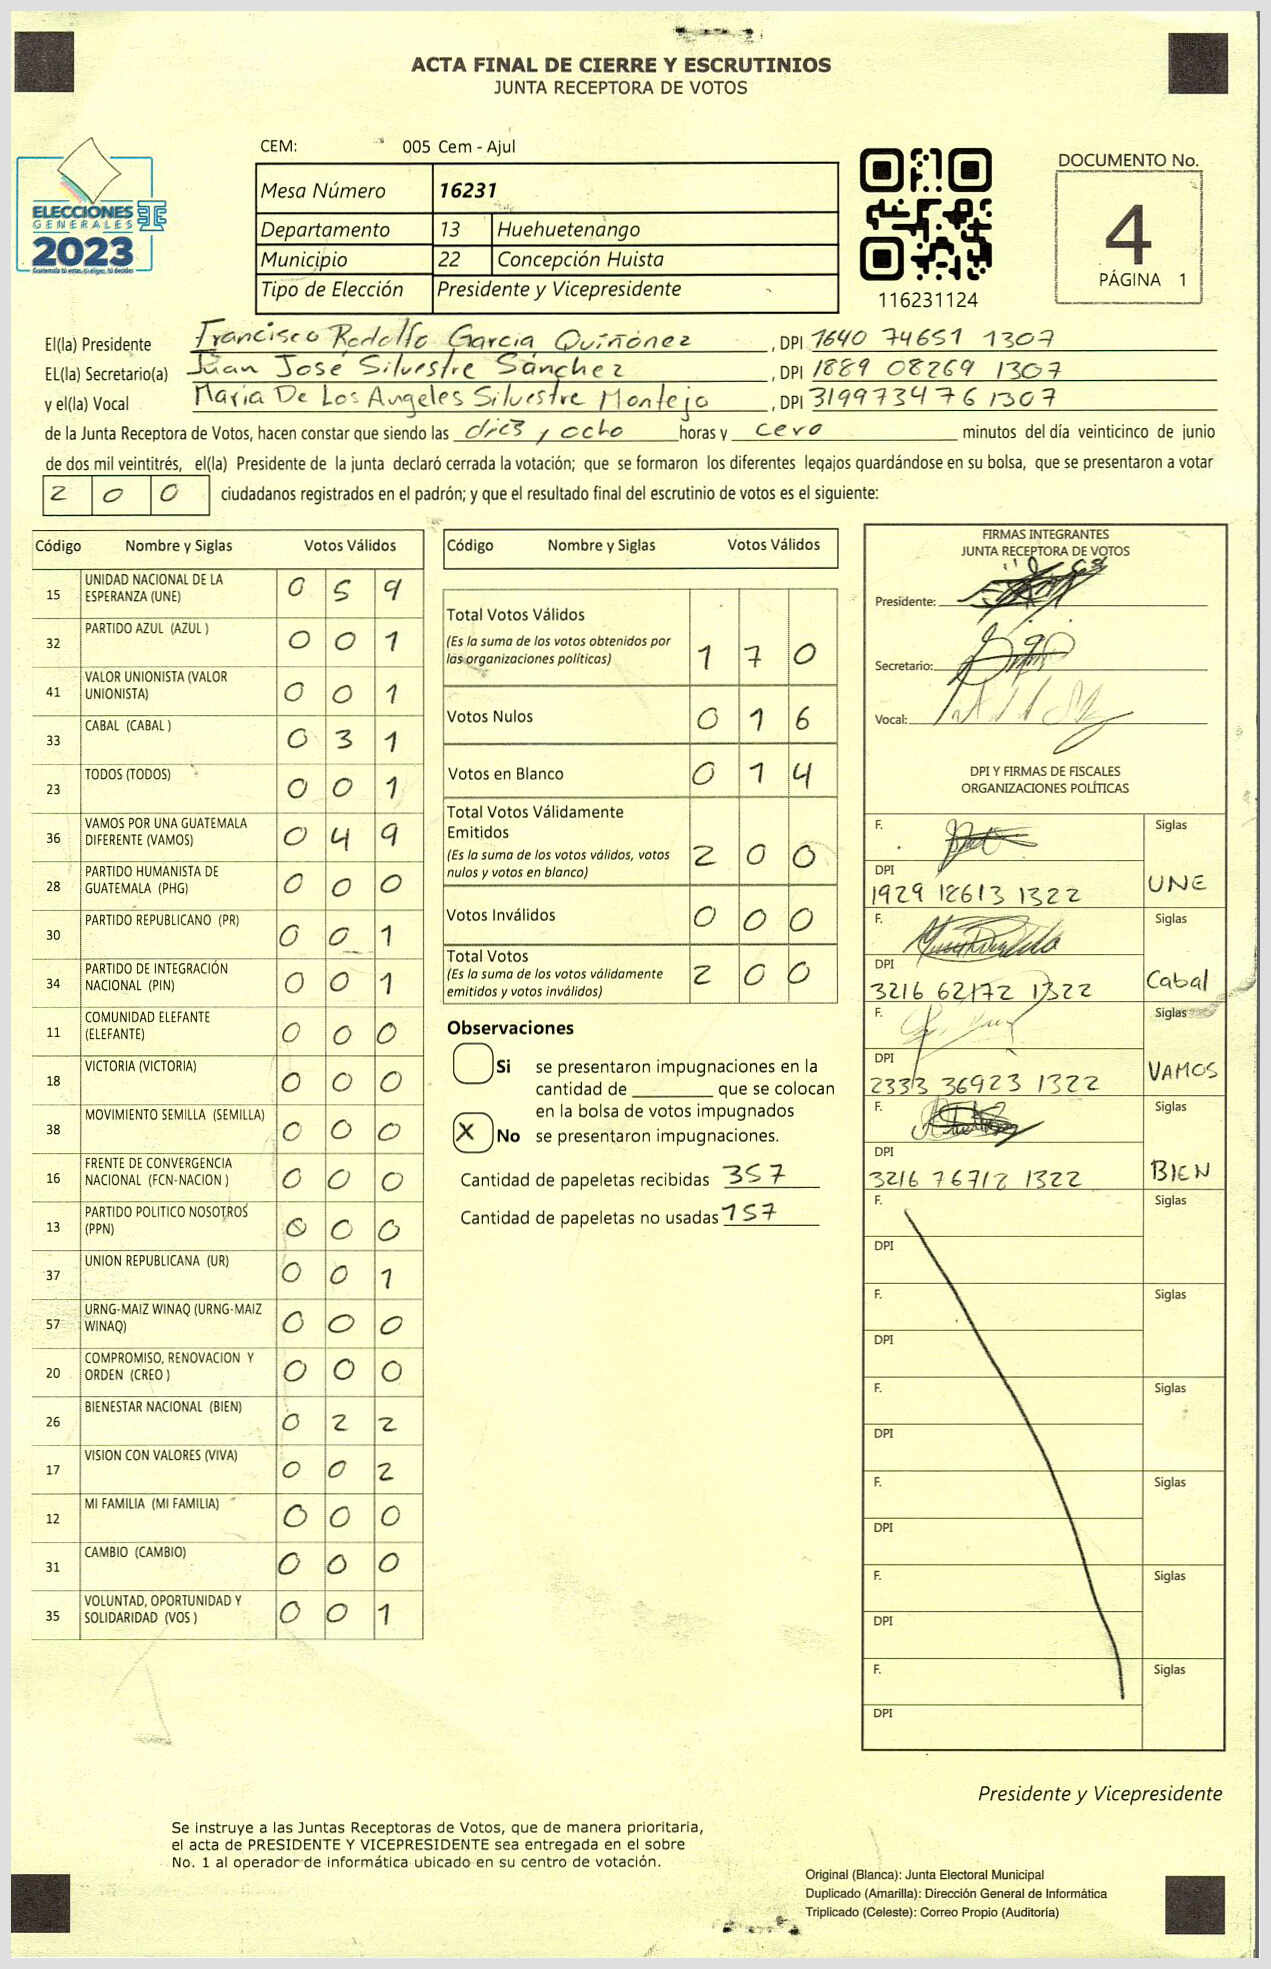 ACTA FINAL DE CIERRE Y ESCRUTINIOS
JUNTA RECEPTORA DE VOTOS
CEM: 005 Cem - Ajul
Mesa Número 16231
Departamento 13 Huehuetenango
Municipio 22 Concepción Huista
Tipo de Elección Presidente y Vicepresidente
ELECCIONES
GENERALES
2023
116231124
DOCUMENTO No.
4
PÁGINA 1
El(la) Presidente Francisco Rodolfo Garcia Quiñónez , DPI 1640 74651 1307
EL(la) Secretario(a) Juan José Silvestre Sánchez , DPI 1889 08269 1307
y el(la) Vocal María De Los Angeles Silvestre Montejo , DPI 319973476 1307
de la Junta Receptora de Votos, hacen constar que siendo las diez y ocho horas y cero minutos del día veinticinco de junio
de dos mil veintitrés, el(la) Presidente de la junta declaró cerrada la votación; que se formaron los diferentes legajos guardándose en su bolsa, que se presentaron a votar
2 0 0 ciudadanos registrados en el padrón; y que el resultado final del escrutinio de votos es el siguiente:
Código Nombre y Siglas Votos Válidos
15 UNIDAD NACIONAL DE LA ESPERANZA (UNE) 0 5 9
32 PARTIDO AZUL (AZUL ) 0 0 1
41 VALOR UNIONISTA (VALOR UNIONISTA) 0 0 1
33 CABAL (CABAL ) 0 3 1
23 TODOS (TODOS) 0 0 1
36 VAMOS POR UNA GUATEMALA DIFERENTE (VAMOS) 0 4 9
28 PARTIDO HUMANISTA DE GUATEMALA (PHG) 0 0 0
30 PARTIDO REPUBLICANO (PR) 0 0 1
34 PARTIDO DE INTEGRACIÓN NACIONAL (PIN) 0 0 1
11 COMUNIDAD ELEFANTE (ELEFANTE) 0 0 0
18 VICTORIA (VICTORIA) 0 0 0
38 MOVIMIENTO SEMILLA (SEMILLA) 0 0 0
16 FRENTE DE CONVERGENCIA NACIONAL (FCN-NACION ) 0 0 0
13 PARTIDO POLITICO NOSOTROS (PPN) 0 0 0
37 UNION REPUBLICANA (UR) 0 0 1
57 URNG-MAIZ WINAQ (URNG-MAIZ WINAQ) 0 0 0
20 COMPROMISO, RENOVACION Y ORDEN (CREO ) 0 0 0
26 BIENESTAR NACIONAL (BIEN) 0 2 2
17 VISION CON VALORES (VIVA) 0 0 2
12 MI FAMILIA (MI FAMILIA) 0 0 0
31 CAMBIO (CAMBIO) 0 0 0
35 VOLUNTAD, OPORTUNIDAD Y SOLIDARIDAD (VOS ) 0 0 1
Código Nombre y Siglas Votos Válidos
Total Votos Válidos
(Es la suma de los votos obtenidos por
las organizaciones políticas) 1 7 0
Votos Nulos 0 1 6
Votos en Blanco 0 1 4
Total Votos Válidamente
Emitidos
(Es la suma de los votos válidos, votos
nulos y votos en blanco) 2 0 0
Votos Inválidos 0 0 0
Total Votos
(Es la suma de los votos válidamente
emitidos y votos inválidos) 2 0 0
Observaciones
Si se presentaron impugnaciones en la
cantidad de ________ que se colocan
en la bolsa de votos impugnados
X No se presentaron impugnaciones.
Cantidad de papeletas recibidas 357
Cantidad de papeletas no usadas 157
FIRMAS INTEGRANTES
JUNTA RECEPTORA DE VOTOS
Presidente:
Secretario:
Vocal:
DPI Y FIRMAS DE FISCALES
ORGANIZACIONES POLÍTICAS
F. Siglas
DPI
1929 18613 1322 UNE
F. Siglas
DPI
3216 62172 1322 Cabal
F. Siglas
DPI
2333 36923 1322 VAMOS
F. Siglas
DPI
3216 76712 1322 BIEN
F. Siglas
DPI
F. Siglas
DPI
F. Siglas
DPI
F. Siglas
DPI
F. Siglas
DPI
F. Siglas
DPI
Presidente y Vicepresidente
Se instruye a las Juntas Receptoras de Votos, que de manera prioritaria,
el acta de PRESIDENTE Y VICEPRESIDENTE sea entregada en el sobre
No. 1 al operador de informática ubicado en su centro de votación.
Original (Blanca): Junta Electoral Municipal
Duplicado (Amarilla): Dirección General de Informática
Triplicado (Celeste): Correo Propio (Auditoría)